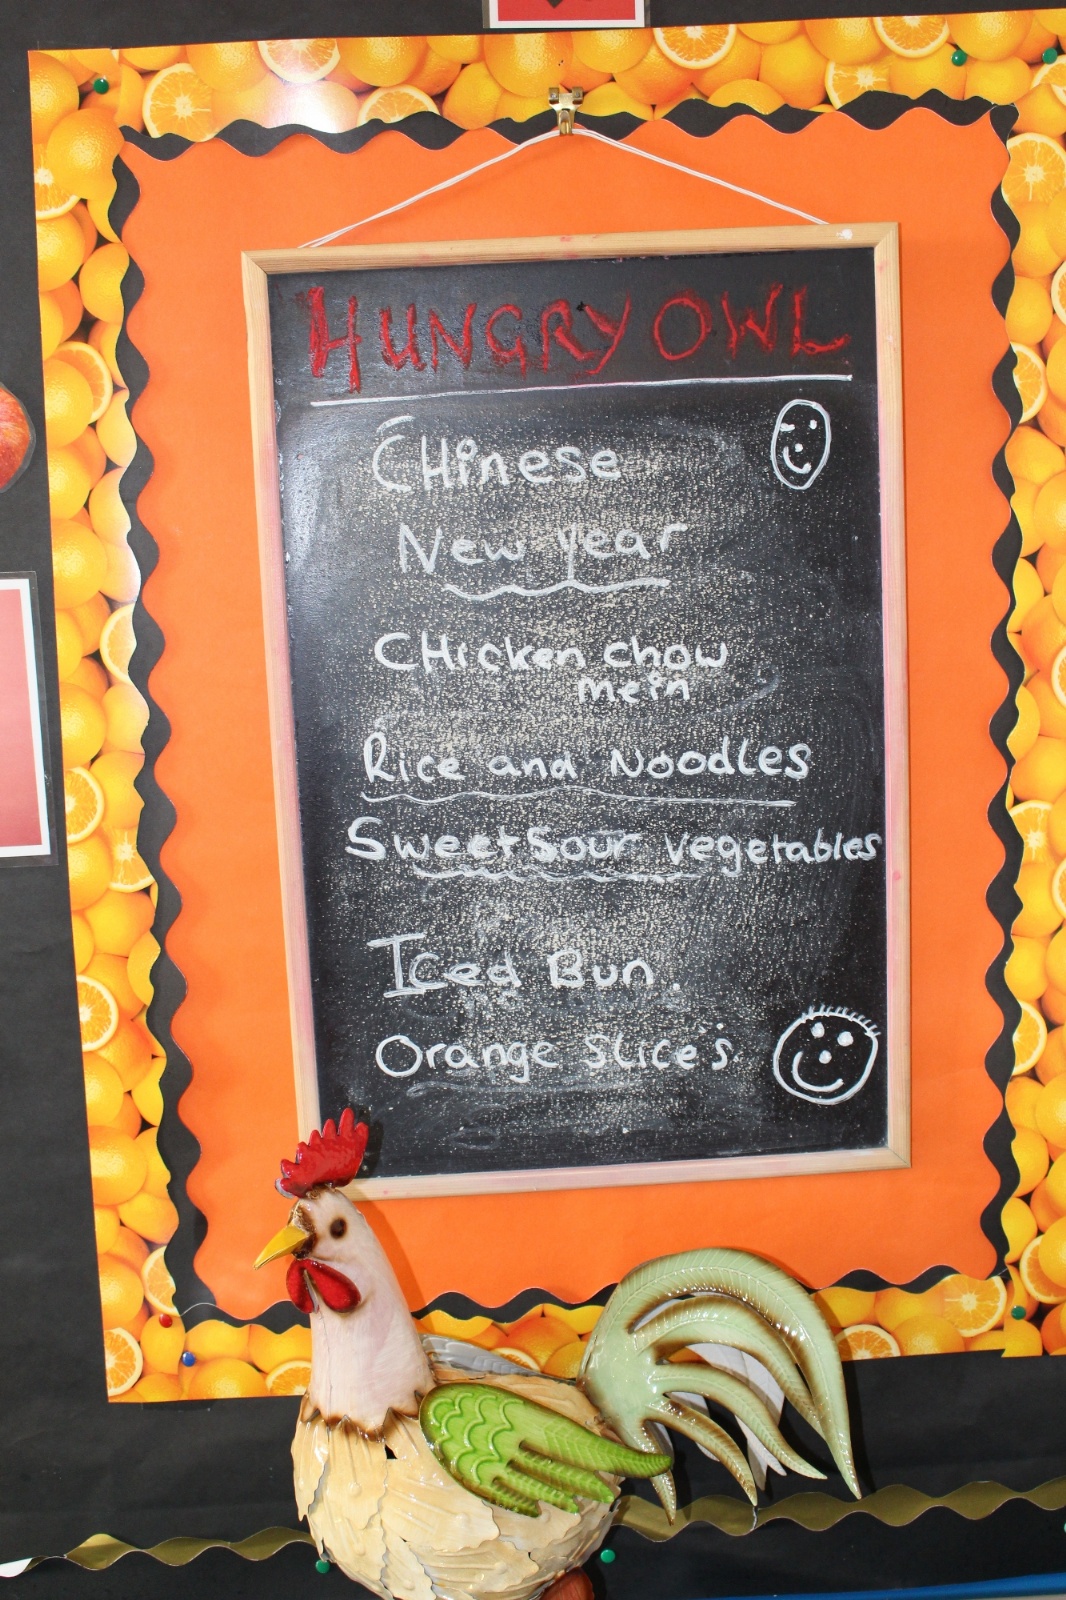 HUNGRY OWL
CHinese
New year
CHicken chow
mein
Rice and Noodles
Sweet Sour vegetables
Iced Bun.
Orange Slice's